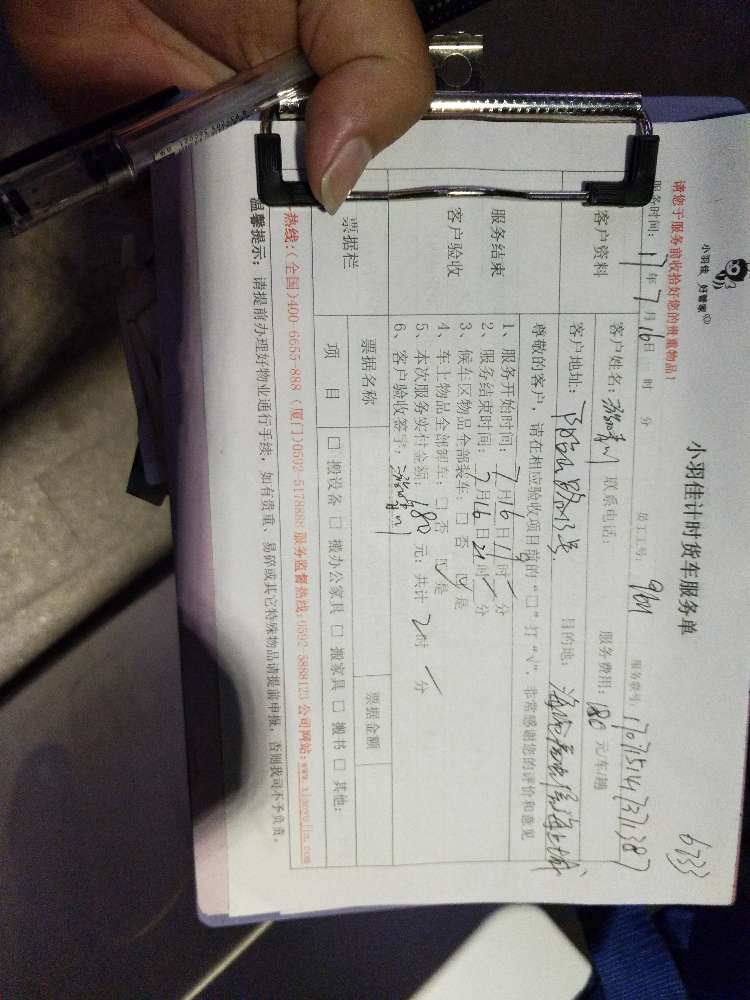 小羽佳 好管家
小羽佳计时货车服务单
6733
请您于服务前收拾好您的贵重物品！
员工工号：
服务单号：17071514137387
服务时间：17年7月16日 时 分
客户资料
客户姓名： 联系电话： 服务费用：180元/车/趟
客户地址： 目的地：
服务结束
客户验收
尊敬的客户，请在相应验收项目前的“□”打“√”，非常感谢您的评价和意见
1、服务开始时间：7月16日 时 分
2、服务结束时间：7月16日21时 分
3、候车区物品全部装车：□ 否 ☑ 是
4、车上物品全部卸车：□ 否 ☑ 是
5、本次服务实付金额：180元：共计 2时 分
6、客户验收签字：
票据栏
票据名称
票据金额
项 目
□ 搬设备 □ 搬办公家具 □ 搬家具 □ 搬书 □ 其他:
热线:(全国)400-6655-888 (厦门)0592-5178888 服务监督热线:0592-5888123 公司网站:www.xiaoyujia.com
温馨提示：请提前办理好物业通行手续，如有贵重、易碎或其它特殊物品请提前申报，否则我司不予负责。